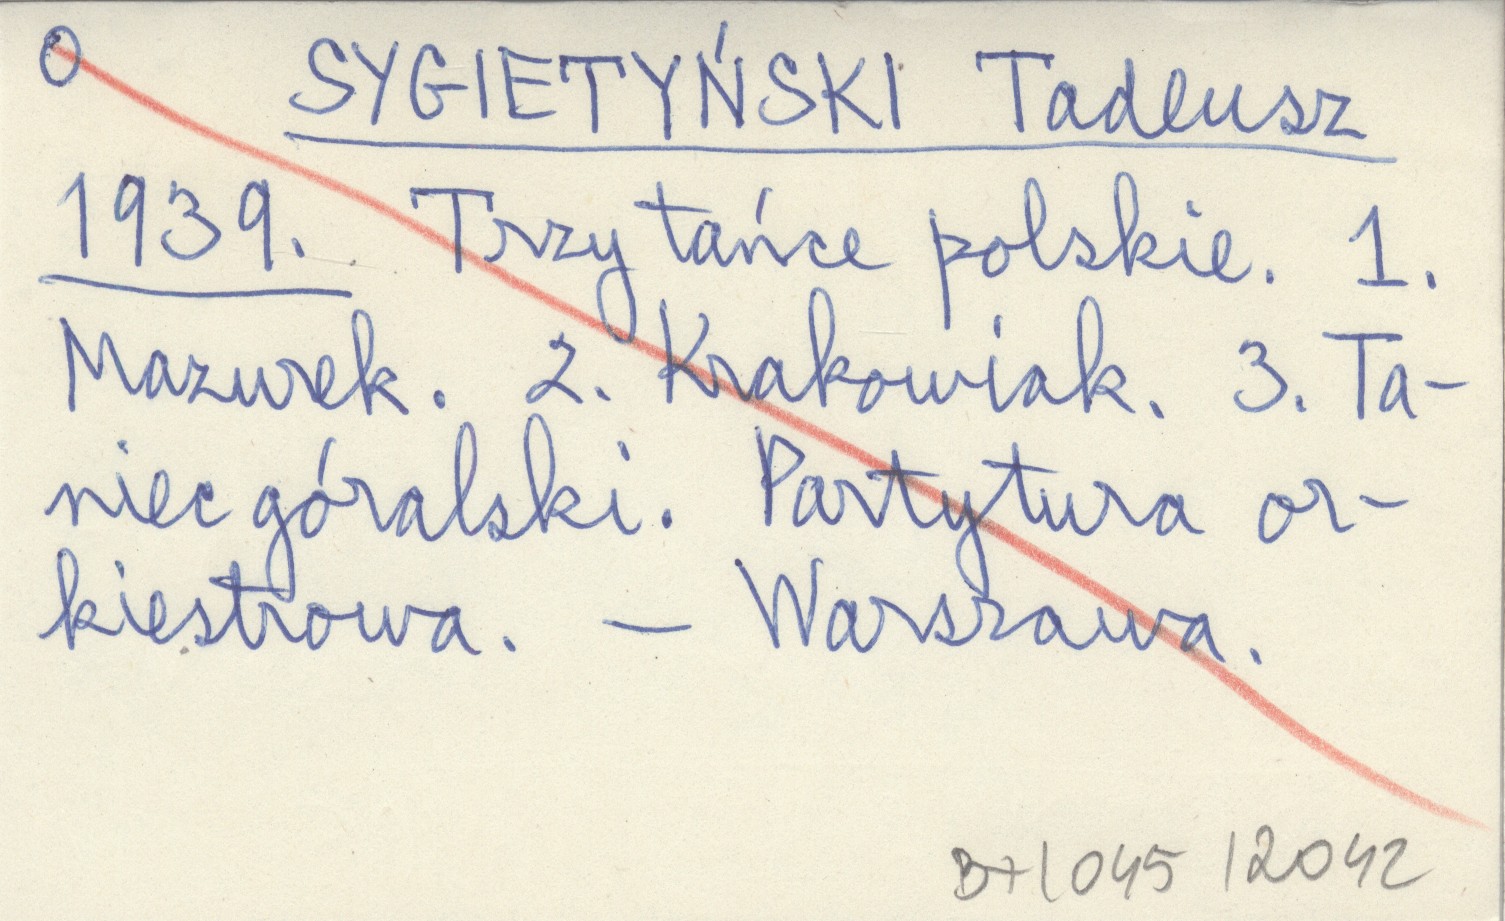 O SYGIETYŃSKI Tadeusz
1939. Trzy tańce polskie. 1.
Mazurek. 2. Krakowiak. 3. Ta-
niec góralski. Partytura or-
kiestrowa. — Warszawa.
B+/045 /2042